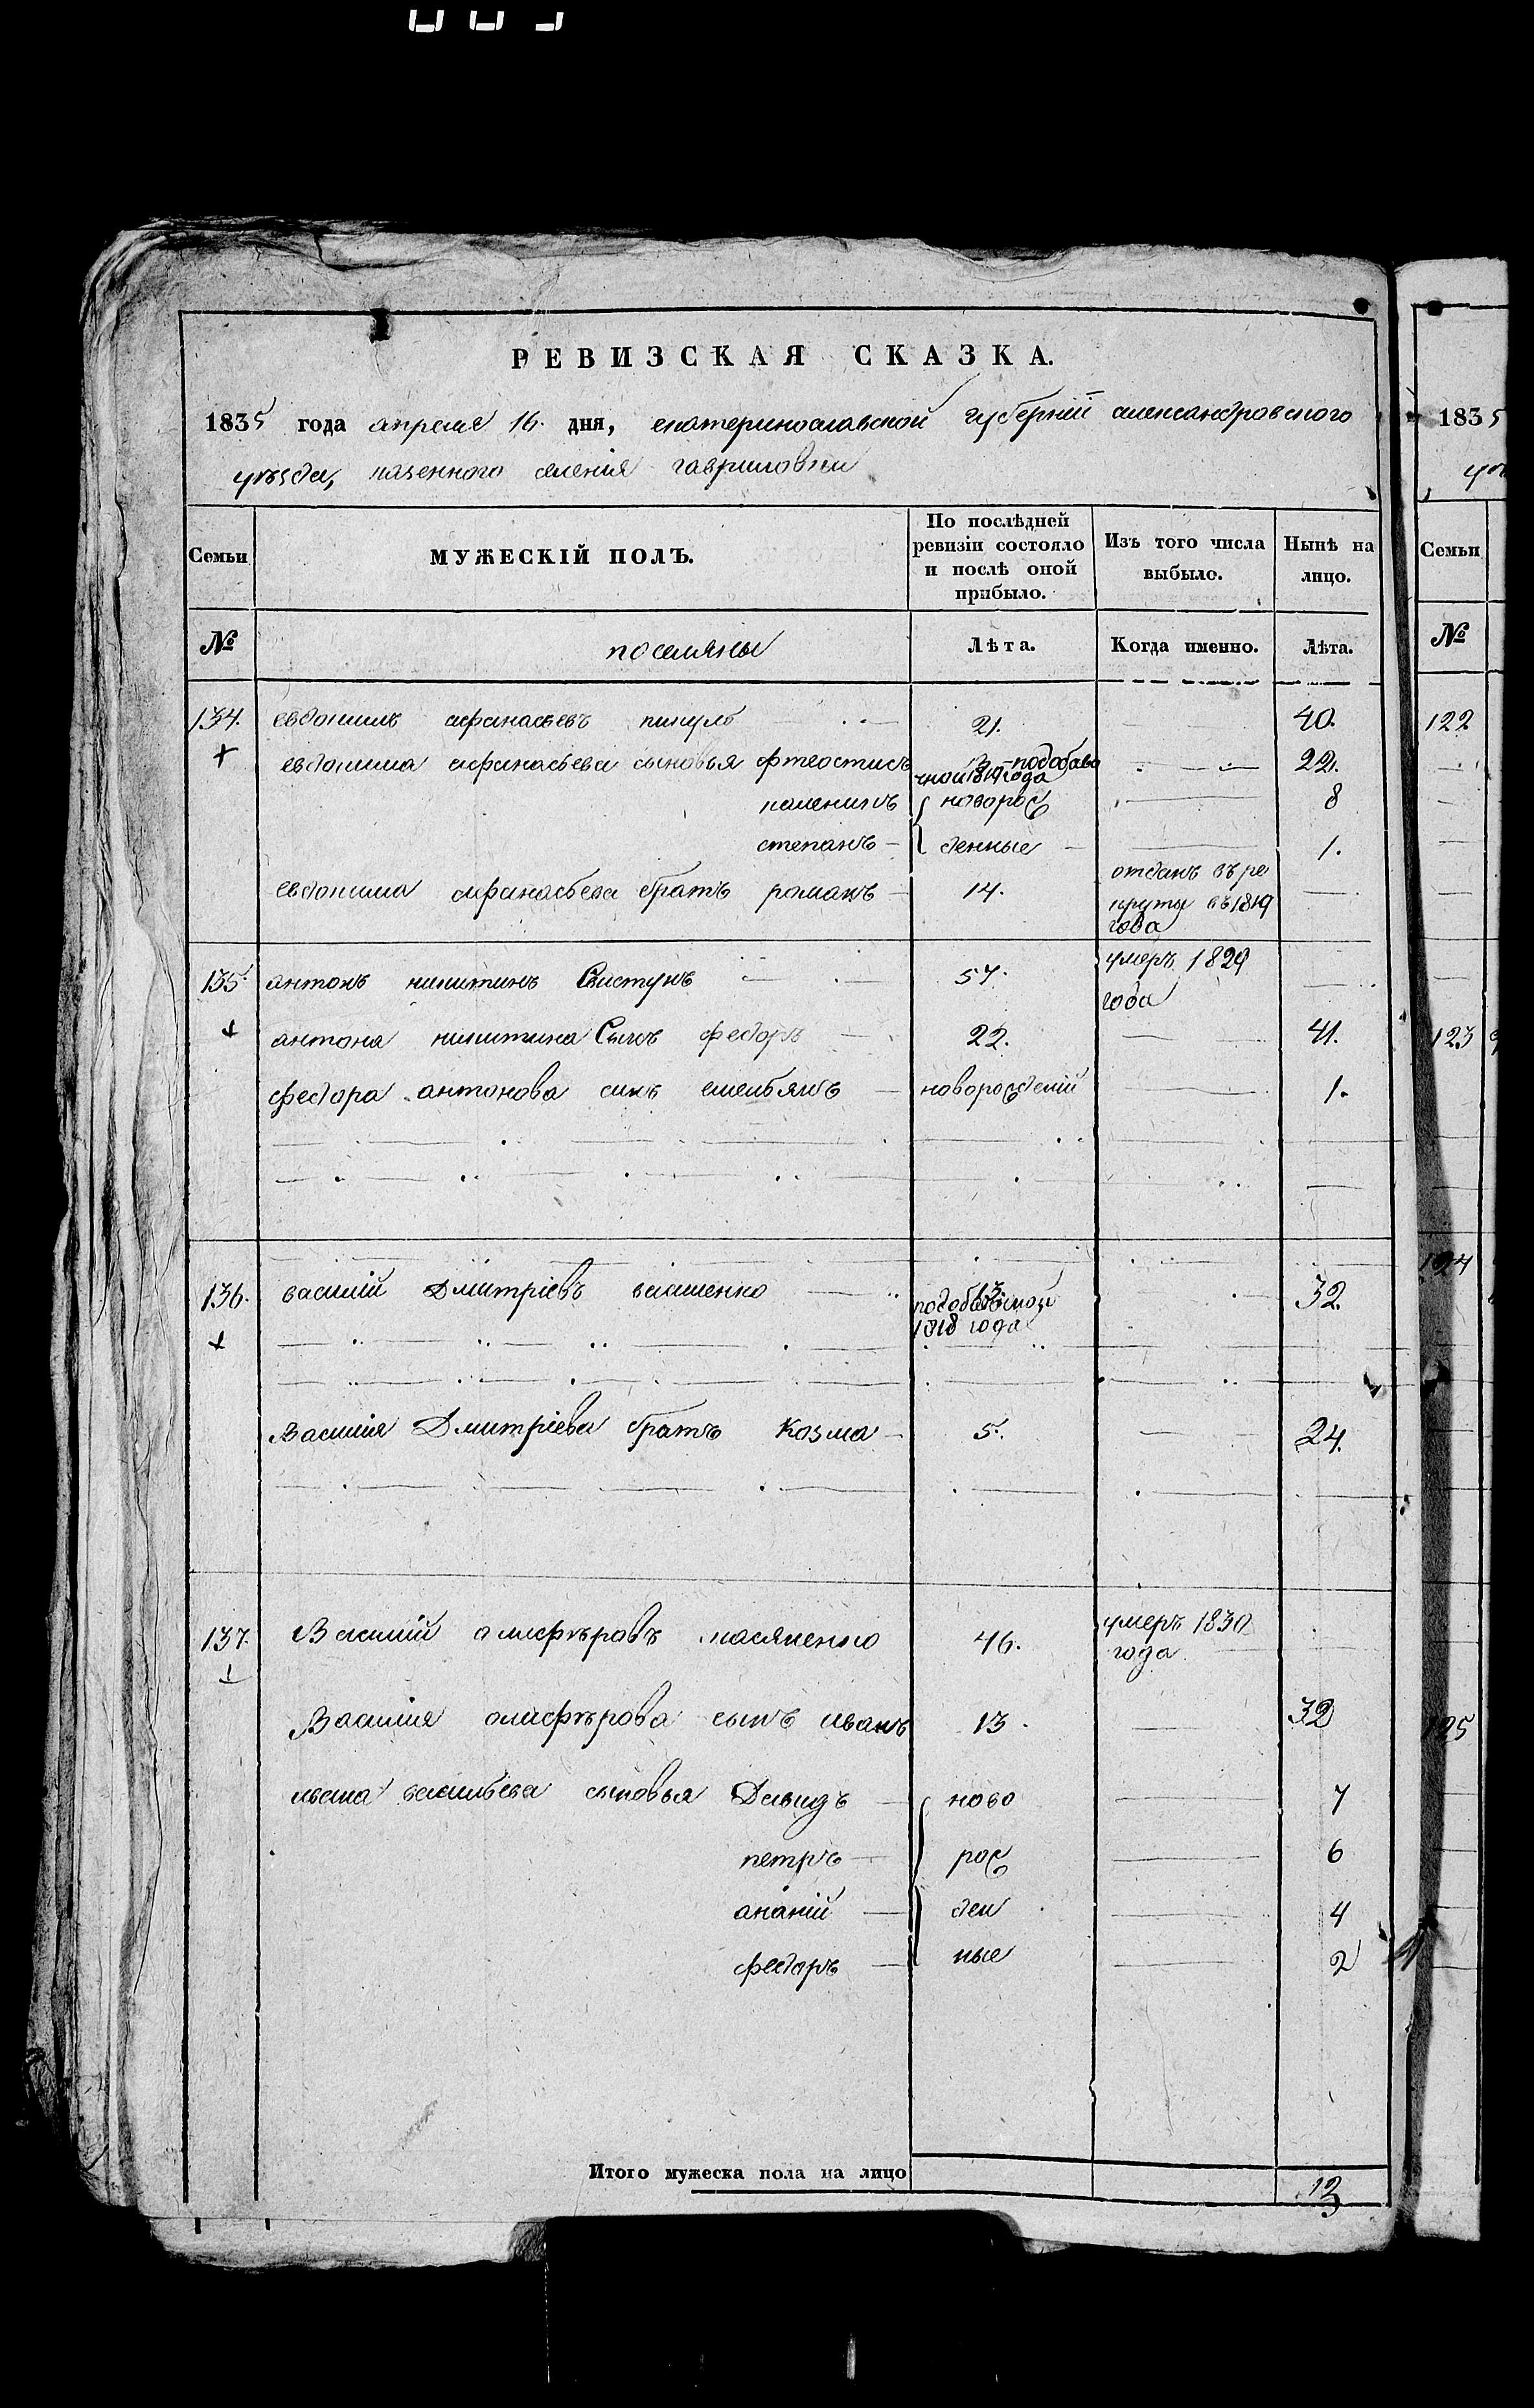 РЕВИЗСКАЯ СКАЗКА.
1835 года апреля 16. дня, екатеринославской губерніи александровского
уѣзда, казенного селенія гавриловки
Семьи
МУЖЕСКІЙ ПОЛЪ.
По послѣдней ревизіи состояло и послѣ оной прибыло.
Изъ того числа выбыло.
Нынѣ на лицо.
№ поселяны Лѣта. Когда именно. Лѣта.
134. евдокимъ афанасьевъ 21. 40.
евдокима афанасьева сыновья фтеостисъ 3 подобаво чной 1819 года 22.
каленикъ новорож 8
степанъ денные 1.
евдокима афанасьева братъ романъ 14. отданъ въ ре круты въ 1819 года
135. антонъ никитинъ Свистунъ 57. умеръ 1829 года
антона никитина Сынъ федоръ 22. 41.
федора антонова синъ емельянъ новорожденій 1.
136. василій Дмитріевъ 13. подобавочной 1818 года 32.
Василія Дмитріева братъ Козма 5. 24.
137. Василій олисфѣровъ касяненко 46. умеръ 1830 года
Василія олисфѣрова сынъ иванъ 13. 32
ивана васильева сыновья Давидъ ново 7
петръ рож 6
ананій ден 4
федоръ ные 2
Итого мужеска пола на лицо 13
1835
Семьи
№
122
123
124
125